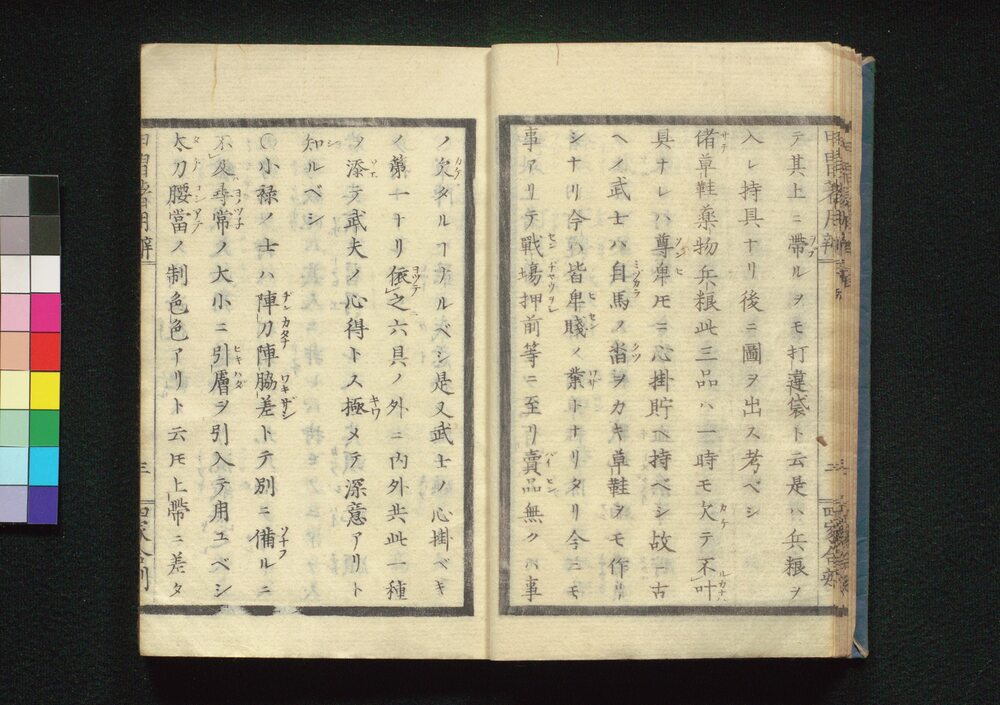 テ其上ニ帶ルヲモ打違袋ト云是ハ兵粮ヲ
入レ持具ナリ後ニ圖ヲ出ス考ベシ
偖草鞋藥物兵粮此三品ハ一時モ欠テ不叶
具ナレハ尊卑モニ心掛貯ヘ持ベシ故ニ古
ヘノ武士ハ自馬ノ沓ヲカキ草鞋ヲモ作リ
シナリ今ハ皆卑賤ノ業トナリタリ今ニモ
事アリテ戰場押前等ニ至リ賣品無クハ事
ノ欠タルヿナルベシ是又武士ノ心掛ベキ
ノ第一ナリ依之六具ノ外ニ内外共此一種
ヲ添テ武夫ノ心得トス極メテ深意アリト
知ルベシ
〇小禄ノ士ハ陣刀陣脇差トテ別ニ備ルニ
不及尋常ノ大小ニ引膚ヲ引入テ用ユベシ
太刀腰當ノ制色色アリト云モ上帶ニ差タ
甲冑著用辨
三